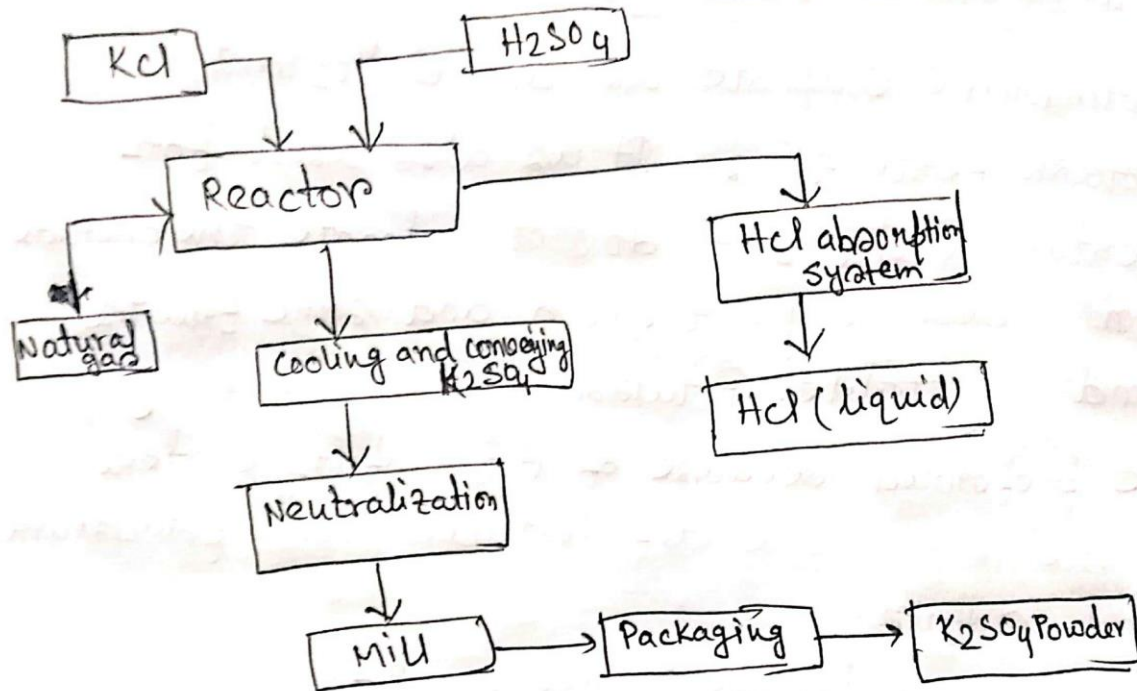 KCl
H2SO4
Reactor
HCl absorption
system
Natural
gas
Cooling and conveying
K2SO4
HCl (liquid)
Neutralization
Mill
Packaging
K2SO4 Powder